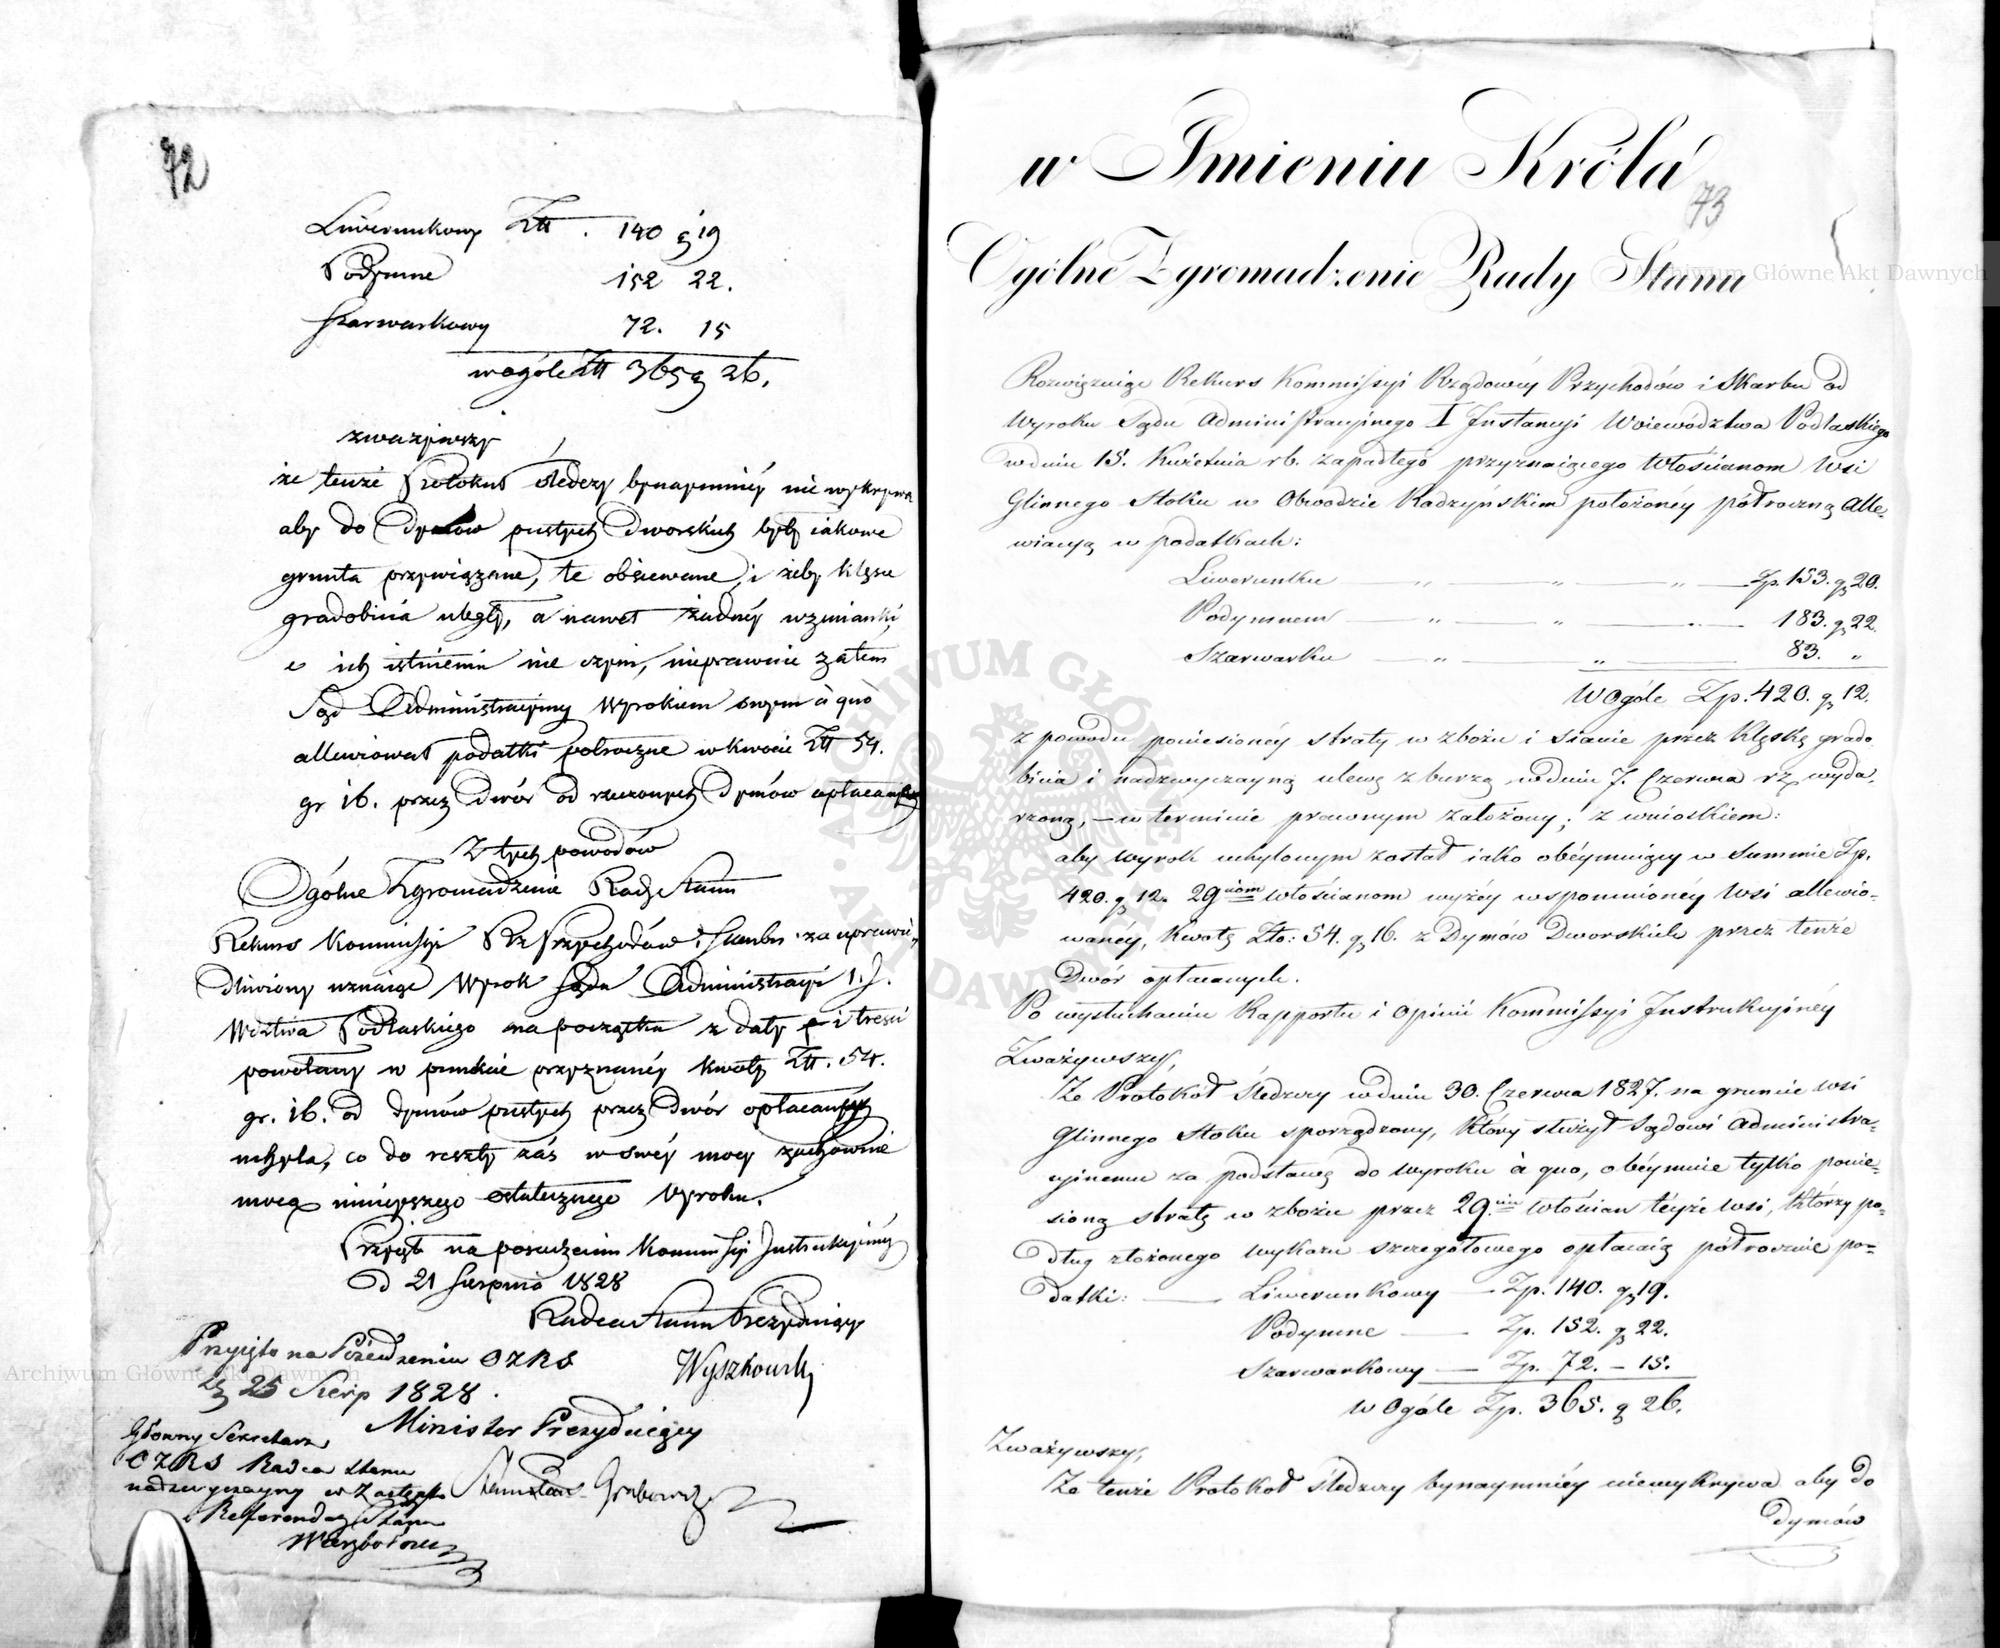 72
Liwerunkowy Złt. 140 g 19
Podymne 152 22.
Szarwarkowy 72. 15
w ogóle Złt 365 g 26.
zważywszy
że tenże Protokuł śledczy bynajmniéy nie wykrywa
aby do Dymów pustych Dworskich były iakowe
grunta przywiązane, te obsiewane, i żeby klęsce
gradobicia uległy, a nawet żadnéy wzmianki
o ich istnieniu nie czyni, nieprawnie zatem
Sąd Administracyiny Wyrokiem swym à quo
allewiował podatki półroczne w kwocie Złt 54.
gr 16. przez Dwór od rzeczonych Dymów opłacanych
Z tych powodów
Ogólne Zgromadzenie Rady Stanu
Rekurs Kommissyi Rz Przychodów i Skarbu za uprawie„
dliwiony uznaiąc Wyrok Sądu Administracyi 1. J.
Wdztwa Podlaskiego na początku z daty i treści
powołany w punkcie przyznanéy kwoty Złt. 54.
gr. 16. od dymów pustych przez Dwór opłacanych
uchyla, co do reszty zaś w swéy mocy zachowuie
mocą ninieyszego ostatecznego Wyroku.
Przyięto na posiedzeniu Kommissyi Instrukcyinéy
D 21 Sierpnia 1828
Radca Stanu Prezyduiący
Wyszkowski
Przyięto na Posiedzeniu OZRS
25 Sierp 1828.
Minister Prezyduiący
Główny Sekretarz
OZRS Radca Stanu
nadzwyczayny w Zastęp
Referendarz Stanu
Stanisław Grabowski
73
w Imieniu Króla
Ogólne Zgromadzenie Rady Stanu
Archiwum Główne Akt Dawnych
Rozwiązuiąc Rekurs Kommissyi Rządowéy Przychodów i Skarbu od
Wyroku Sądu Administracyinego I Instancyi Woiewództwa Podlaskiego
w dniu 15. Kwietnia rb. zapadłego przyznaiącego Włościanom Wsi
Glinnego Stoku w Obwodzie Radzyńskim położonéy półroczną Alle„
wiacyą w podatkach:
Liwerunku — „ — „ — „ — Zp. 153. g 20.
Podymnem — „ — „ — 183. g 22.
Szarwarku — „ — „ — 83. „
W Ogóle Zp. 420. g 12.
z powodu poniesionéy straty w zbożu i sianie przez klęskę grado
bicia i nadzwyczayną ulewę z burzą w dniu 7. Czerwca rz wyda„
rzoną, — w terminie prawnym założony; z wnioskiem:
aby wyrok uchylonym został iako obéymuiący w Summie Zp.
420. g 12. 29ciom włościanom wyżéy wspomnionéy Wsi allewio„
wanéy, Kwotę Zło: 54. g 16. z Dymów Dworskich przez tenże
Dwór opłacanych.
Po wysłuchaniu Rapportu i opinii Kommissyi Instrukcyinéy
Zważywszy,
Że Protokół Śledczy w dniu 30. Czerwca 1827. na gruncie wsi
Glinnego Stoku sporządzony, który służył Sądowi Administra„
cyinemu za podstawę do wyroku à quo, obéymuie tylko ponie„
sioną stratę w zbożu przez 29ciu włościan téyże wsi, którzy po„
dług złożonego wykazu szczegółowego opłacaią półrocznie po„
datki: — Liwerunkowy — Zp. 140. g 19.
Podymne — Zp. 152. g 22.
Szarwarkowy — Zp. 72. — 15.
w Ogóle Zp. 365. g 26.
Zważywszy,
Że tenże Protokół śledczy bynaymniéy niewykrywa aby do
Dymów
Archiwum Główne Akt Dawnych
ARCHIWUM GŁÓWNE AKT DAWNYCH